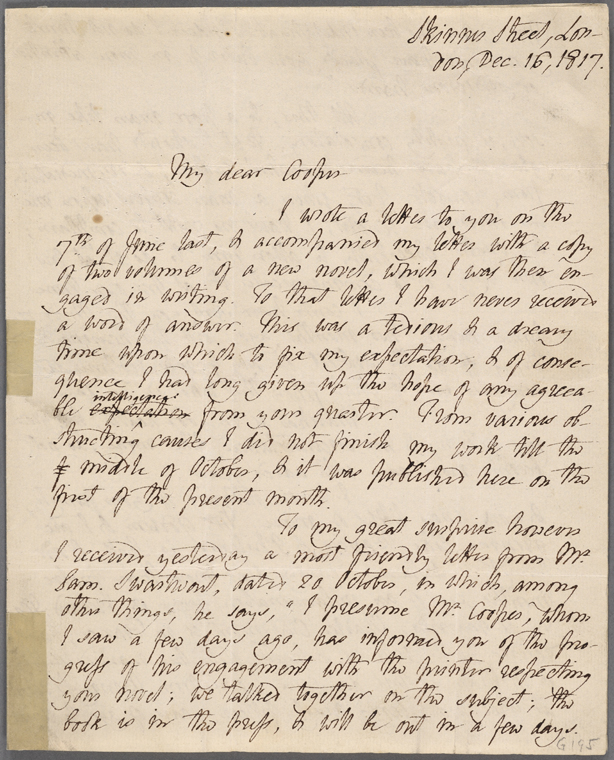 Skinner Street, Lon-
don, Dec. 16, 1817.
My dear Cooper
I wrote a letter to you on the
7th of June last, & accompanied my letter with a copy
of two volumes of a new novel, which I was then en-
gaged in writing. To that letter I have never received
a word of answer. This was a tedious & a dreary
time upon which to fix my expectation, & of conse-
quence I had long given up the hope of any agreea-
intelligence
ble expectation from your quarter. From various ob-
structing causes I did not finish my work till the
middle of October, & it was published here on the
first of the present month.
To my great surprise however
I received yesterday a most friendly letter from Mr.
Sam. Swartwout, dated 20 October, in which, among
other things, he says, "I presume Mr. Cooper, whom
I saw a few days ago, has informed you of the pro-
gress of his engagement with the printer respecting
your novel; we talked together on the subject; the
book is in the press, & will be out in a few days.
G195